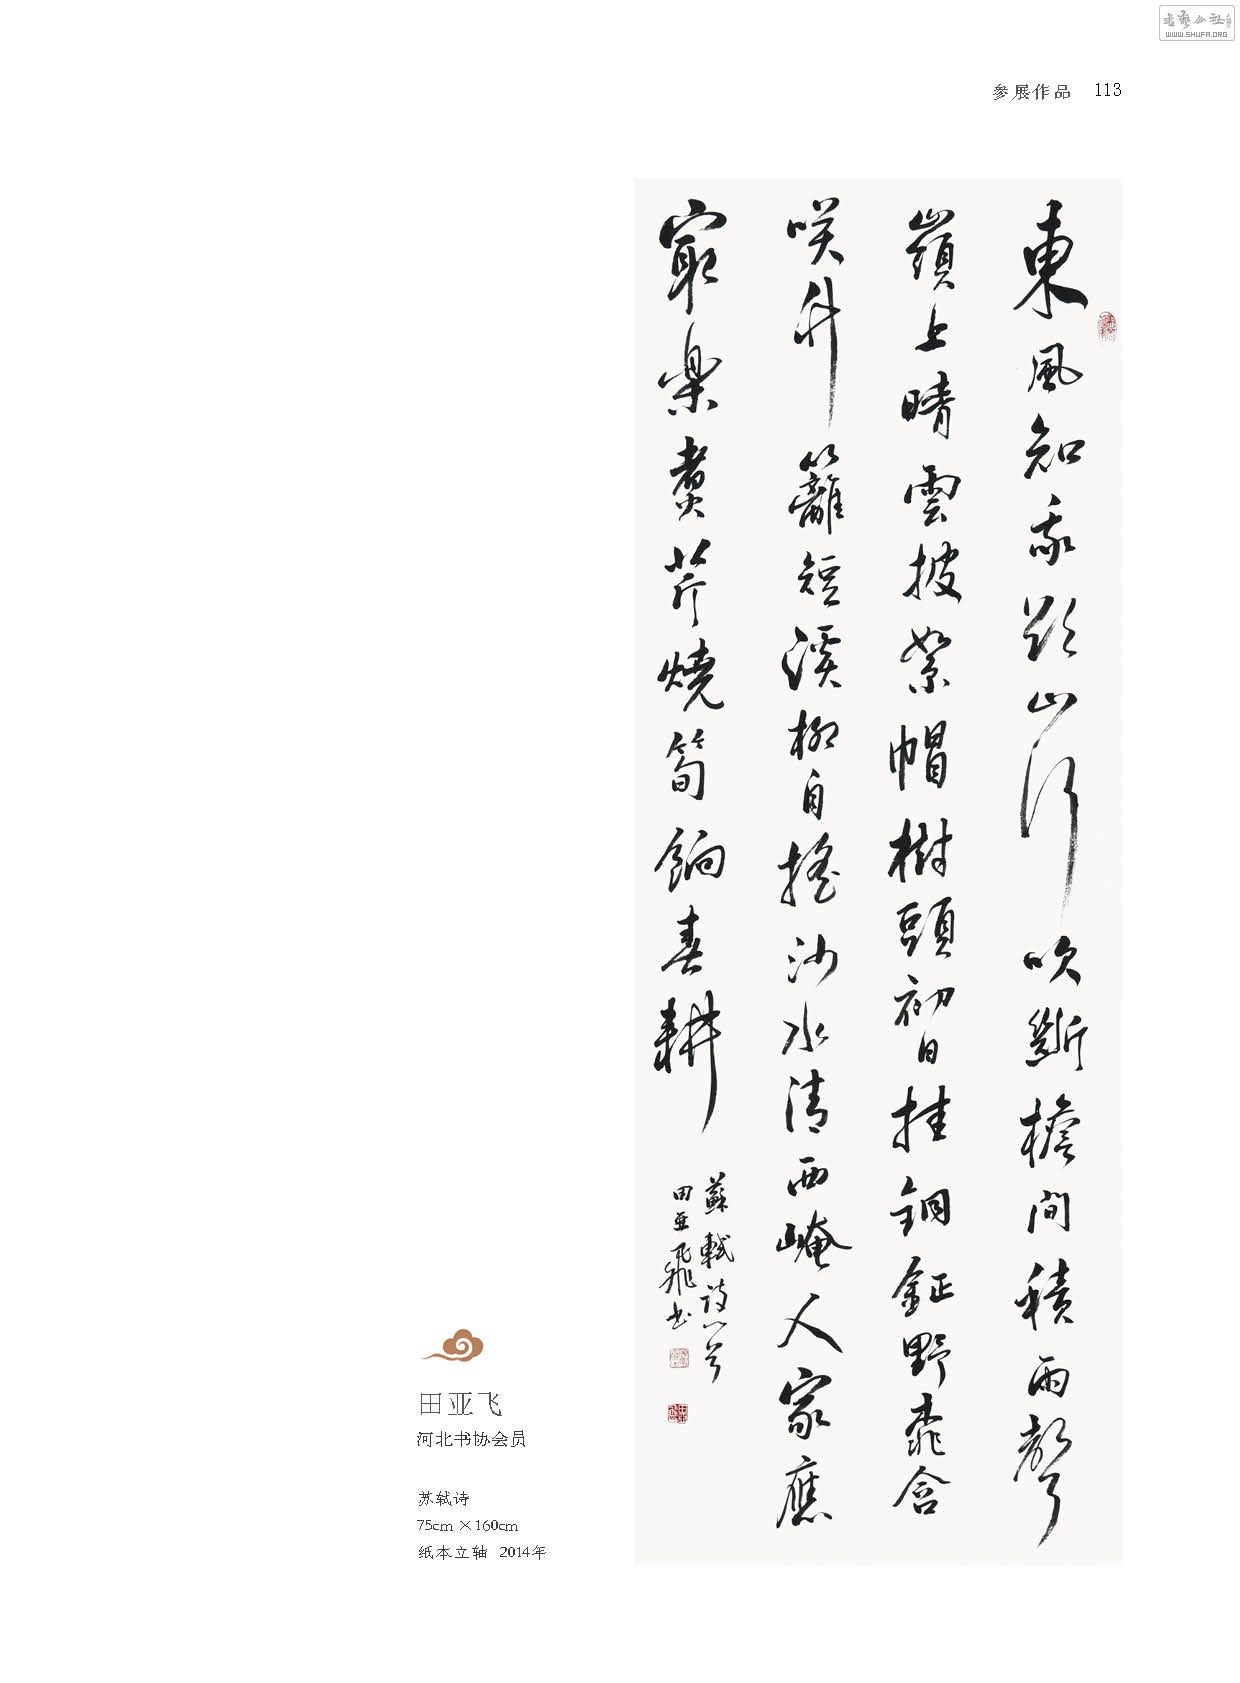 書藝公社
WWW.SHUFA.ORG
参展作品 113
東風知我欲山行吹斷檐間積雨聲
嶺上晴雲披絮帽樹頭初日挂銅鉦野桃含
咲竹籬短溪柳自搖沙水清西崦人家應
冣楽煑芹燒筍餉春耕
蘇軾詩一首
田亜飛书
田亚飞
河北书协会员
苏轼诗
75cm×160cm
纸本立轴 2014年